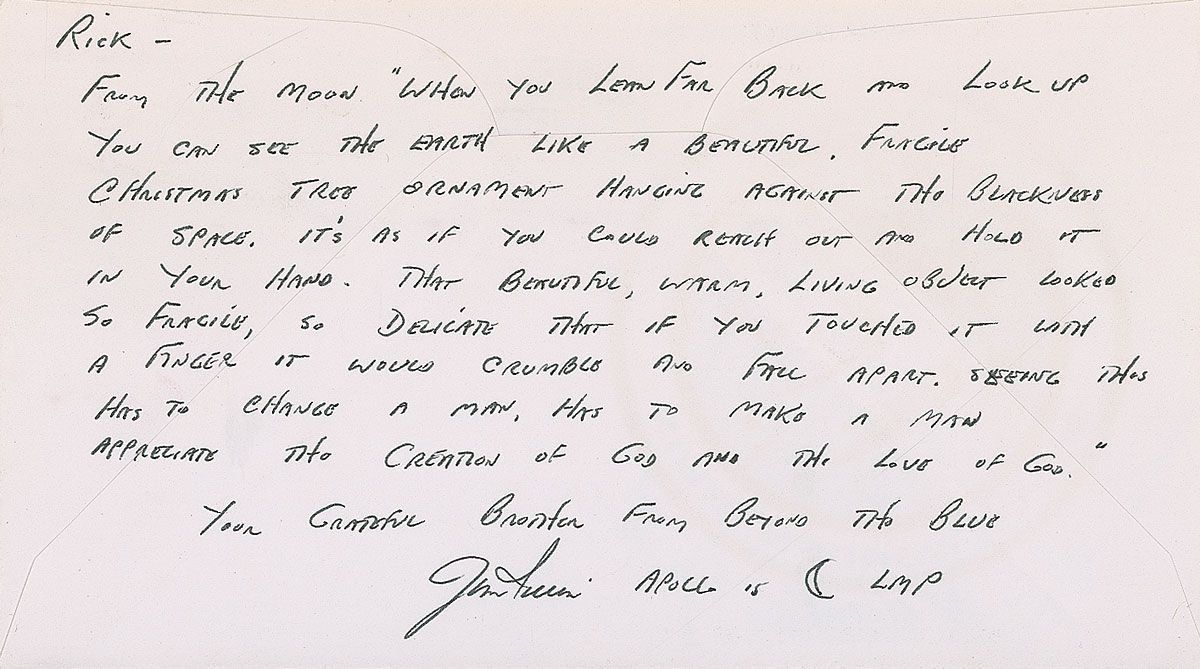 Rick -
From the moon "When you lean far back and look up
you can see the earth like a beautiful, fragile
Christmas tree ornament hanging against the blackness
of space. It's as if you could reach out and hold it
in your hand. That beautiful, warm, living object looked
so fragile, so delicate that if you touched it with
a finger it would crumble and fall apart. Seeing this
has to change a man, has to make a man
appreciate the creation of God and the love of God."
Your Grateful Brother From Beyond the Blue
Jim Irwin Apollo 15 ☾ LMP